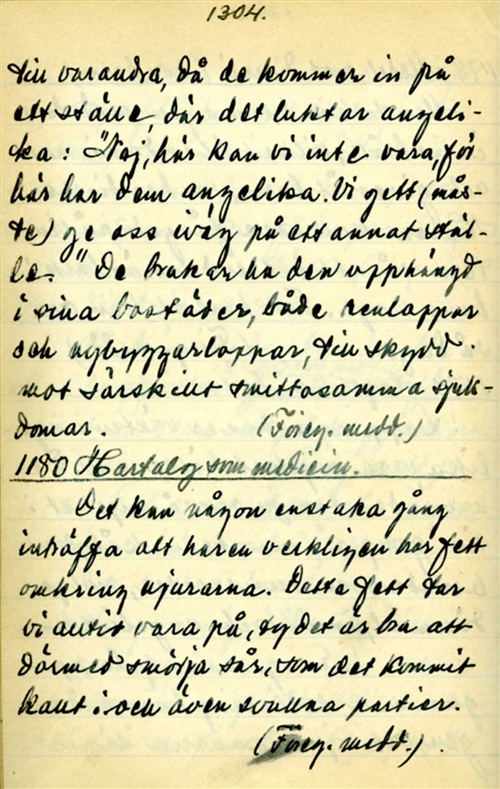 1304.
till varandra, då de kommer in på
ett ställe, där det luktar angeli-
ka: "Nej, här kan vi inte vara, för
här har dem angelika. Vi gett (mås-
te) ge oss iväg på ett annat stäl-
le." De brukar ha den upphängd
i sina bostäder, både renlappar
och nybyggarlappar, till skydd
mot särskilt smittosamma sjuk-
domar. (Föreg. medd.)
1180 Hartalg som medicin.
Det kan någon enstaka gång
inträffa att haren verkligen har fett
omkring njurarna. Detta fett tar
vi alltid vara på, ty det är bra att
därmed smörja sår, som det kommit
kallt i och även svullna partier.
(Föreg. medd.)